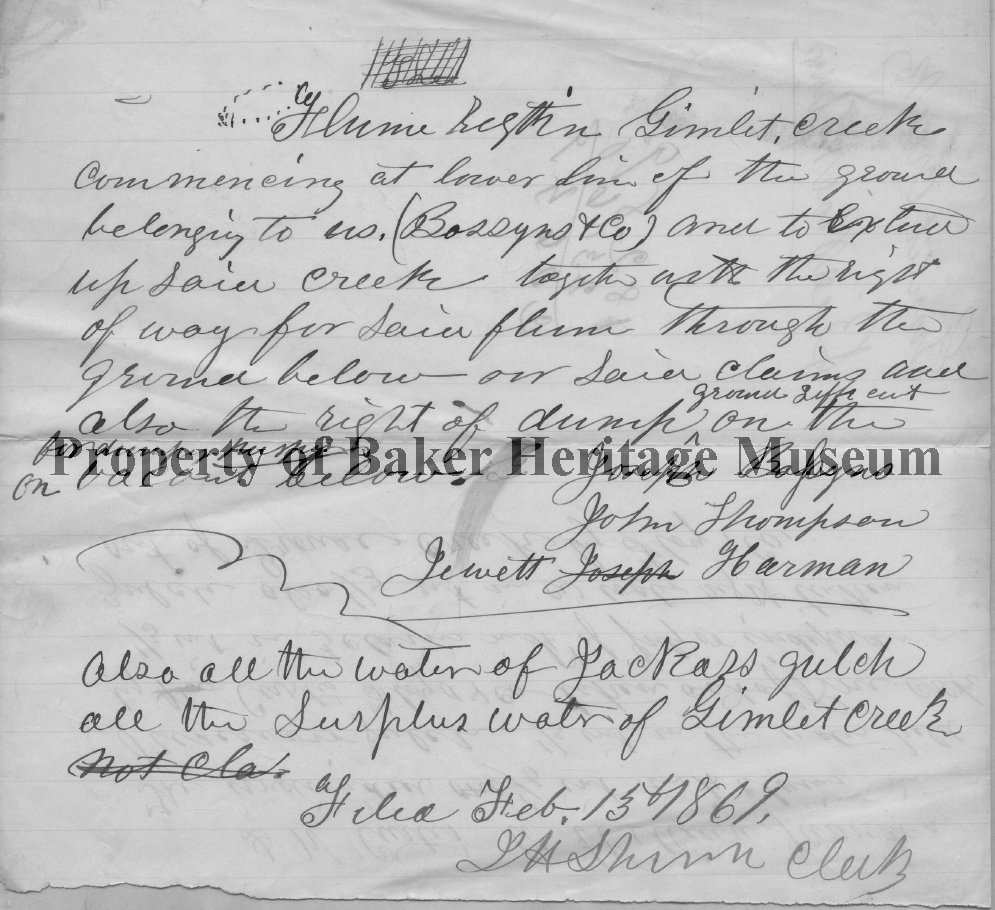 a Flume right in Gimlet, creek
commencing at lower line of the ground
belonging to us. (Bossyns & Co) and to Extend
up said creek together with the right
of way for said flume through the
ground below our said claims and
also the right of dump ground sufficient on the
for dump
on vacant below.
Joseph Bossyns
John Thompson
Jewett Joseph Harman
Also all the water of Jackass gulch
all the Surplus water of Gimlet creek
not cla.
Filed Feb. 15th 1869.
Clerk
Property of Baker Heritage Museum